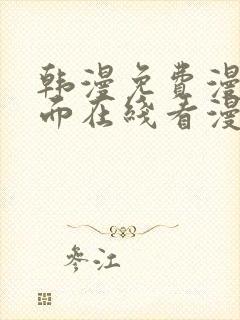 韩漫免费漫
而在线看漫
參江